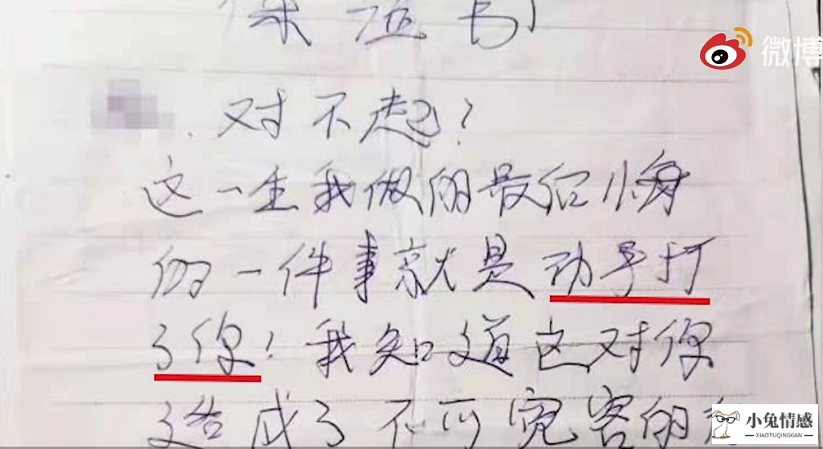 保证书
微博
对不起?
这一生我做的最后悔
的一件事就是动手打
了你!我知道这对你
造成了不可宽容的
小兔情感
XIAOTUQINGGAN